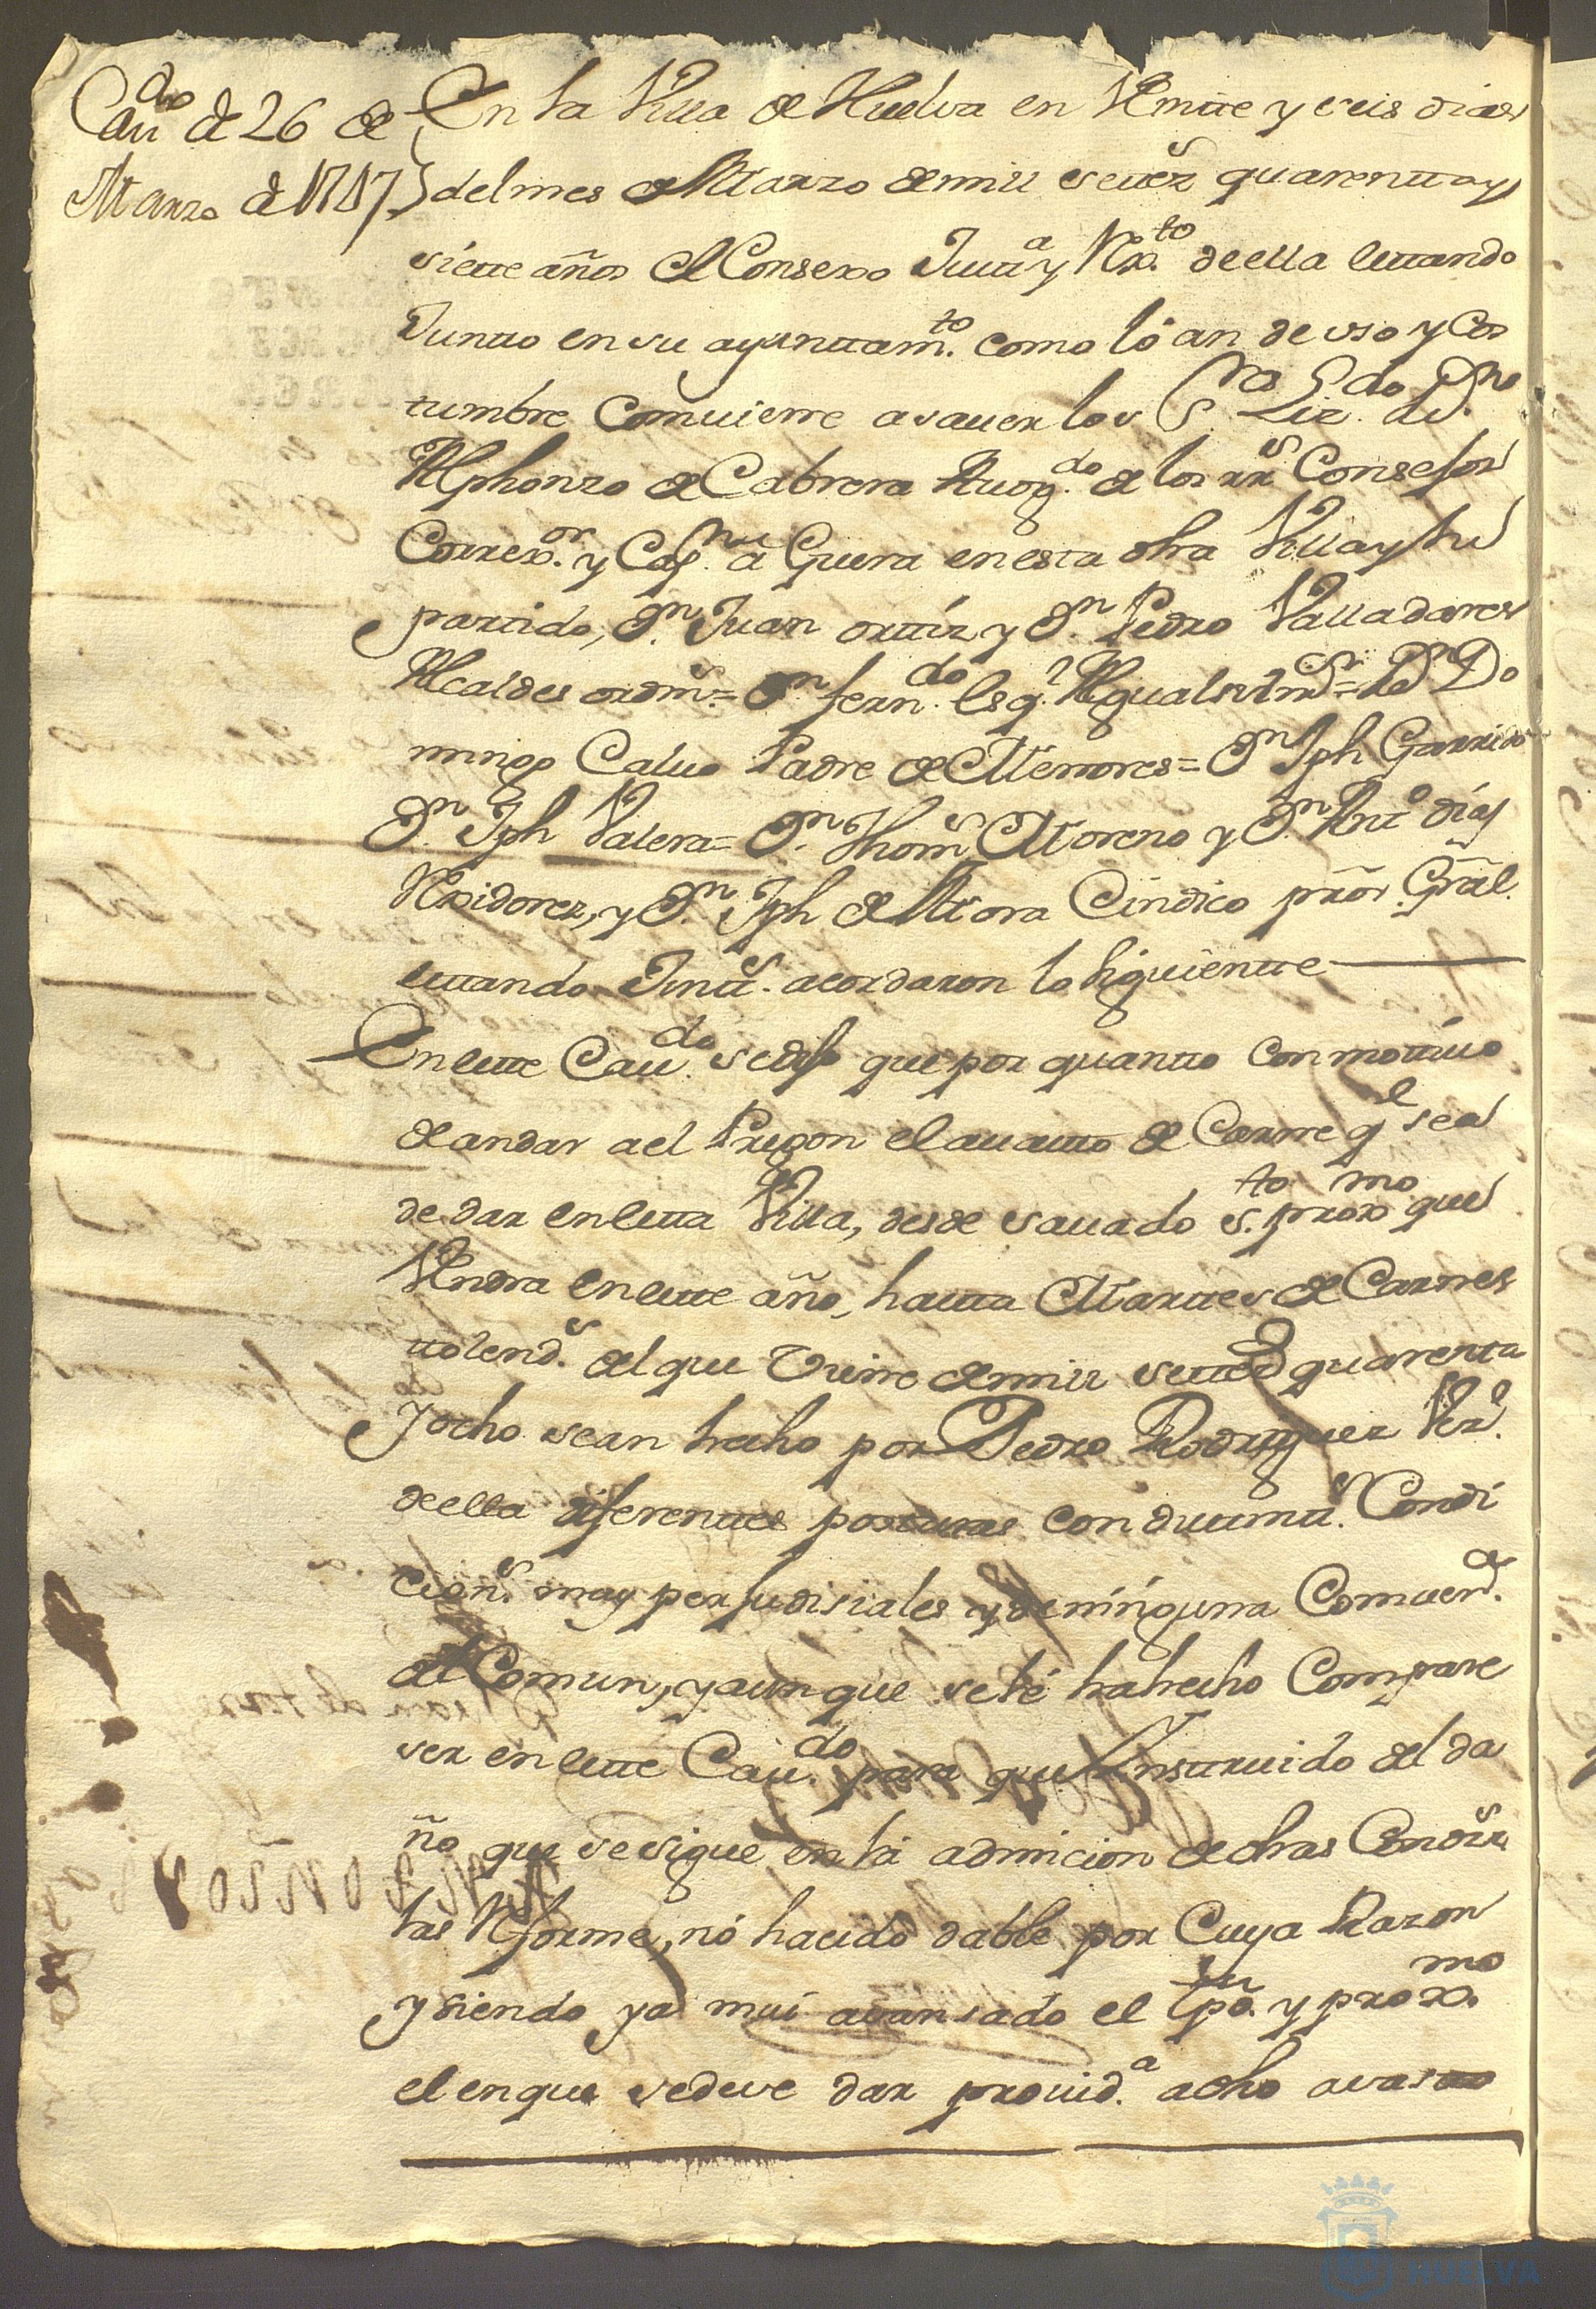 Cau.do de 26 de
Marzo de 1747
En la Villa de Huelva en Veintte y seis dias
del mes de Marzo de mill settez.s quarentta y
siette años el Consexo Justt.a y Rex.to de ella esttando
Juntto en su ayunttam.to como lo an de uso y cos
tumbre combiene a sauer los S.res Liz.do D.n
Alphonzo de Cabrera Auog.do de los rr.s Consejos
Correx.or y Cap.n a Guerra en esta dha Villa y su
partido, D.n Juan orttiz y D.n Pedro Valladares
Alcaldes ordin.s = D.n fern.do Esq.l Alguasil m.r = D.n Do
mingo Caluo Padre de Menores = D.n Jph Garrido
D.n Jph Valera = D.n Thom.s Moreno y D.n Antt.o días
Rexidores, y D.n Jph de Mora Cindico prõr Grãl.
esttando Juntt.s acordaron lo siguientte
En estte Cau.do se dijo que por quantto con mottiuo
de andar a el Pregon el auastto de Carne q.e se a
de dar en estta Villa, desde sauado s.to prox.mo que
Vendra en estte año, hastta Marttes de Carnes
ttolend.s del que viene de mill settez.s quarenta
Y ocho se an hecho por Pedro Rodriguez Vez.o
de ella diferenttes postturas con disttintt.s Condi
cion.s muy perjudisiales y de ninguna Comben.a
al Comun, y aunque se le ha hecho Compare
ser en estte Cau.do para que Ynsttruido del da
ño que se sigue en la admicion de dhas Condiz.s
las Reforme, no ha sido dable por Cuya Razon
y siendo ya mui auansado el tpo. y prox.mo
el en que se deue dar prouid.a a dho auastto
HUELVA